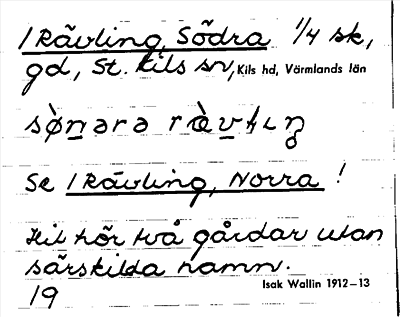 /Rävling, Södra 1/4 sk,
gd, St. Kils sn, Kils hd, Värmlands län
Se /Rävling, Norra !
Hit hör två gårdar utan
särskilda namn.
19 Isak Wallin 1912–13